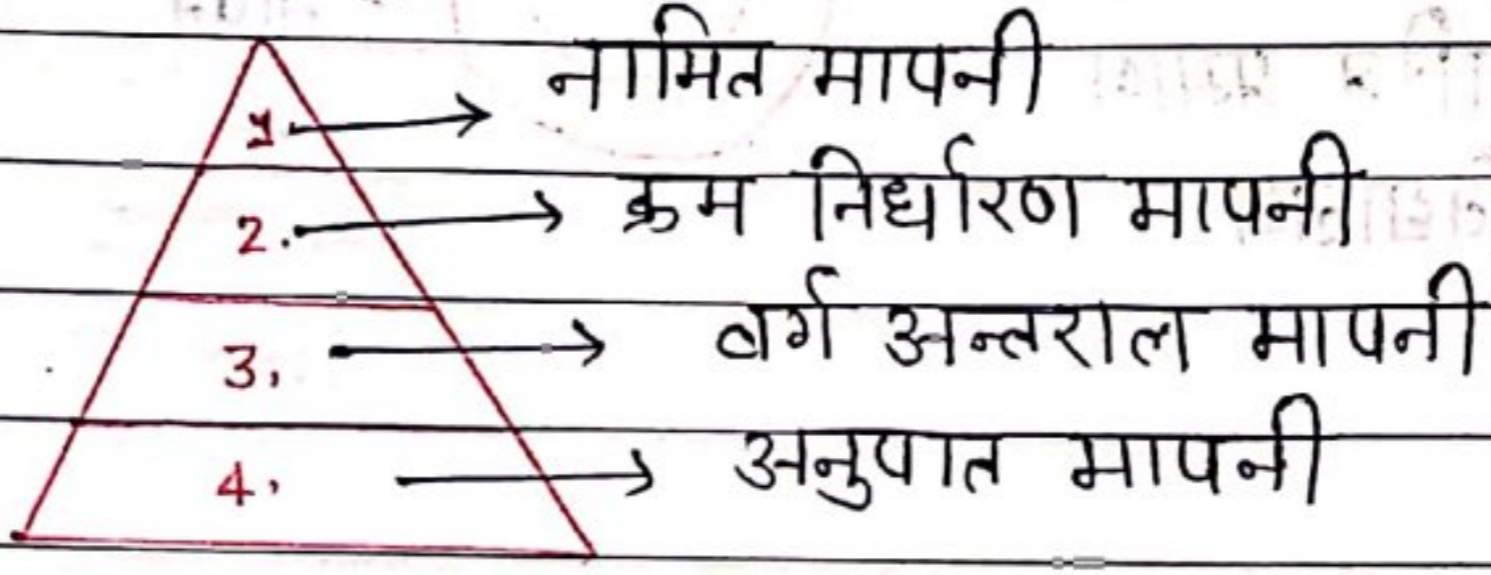 1 → नामित मापनी
2. → क्रम निर्धारण मापनी
3. → वर्ग अन्तराल मापनी
4. → अनुपात मापनी